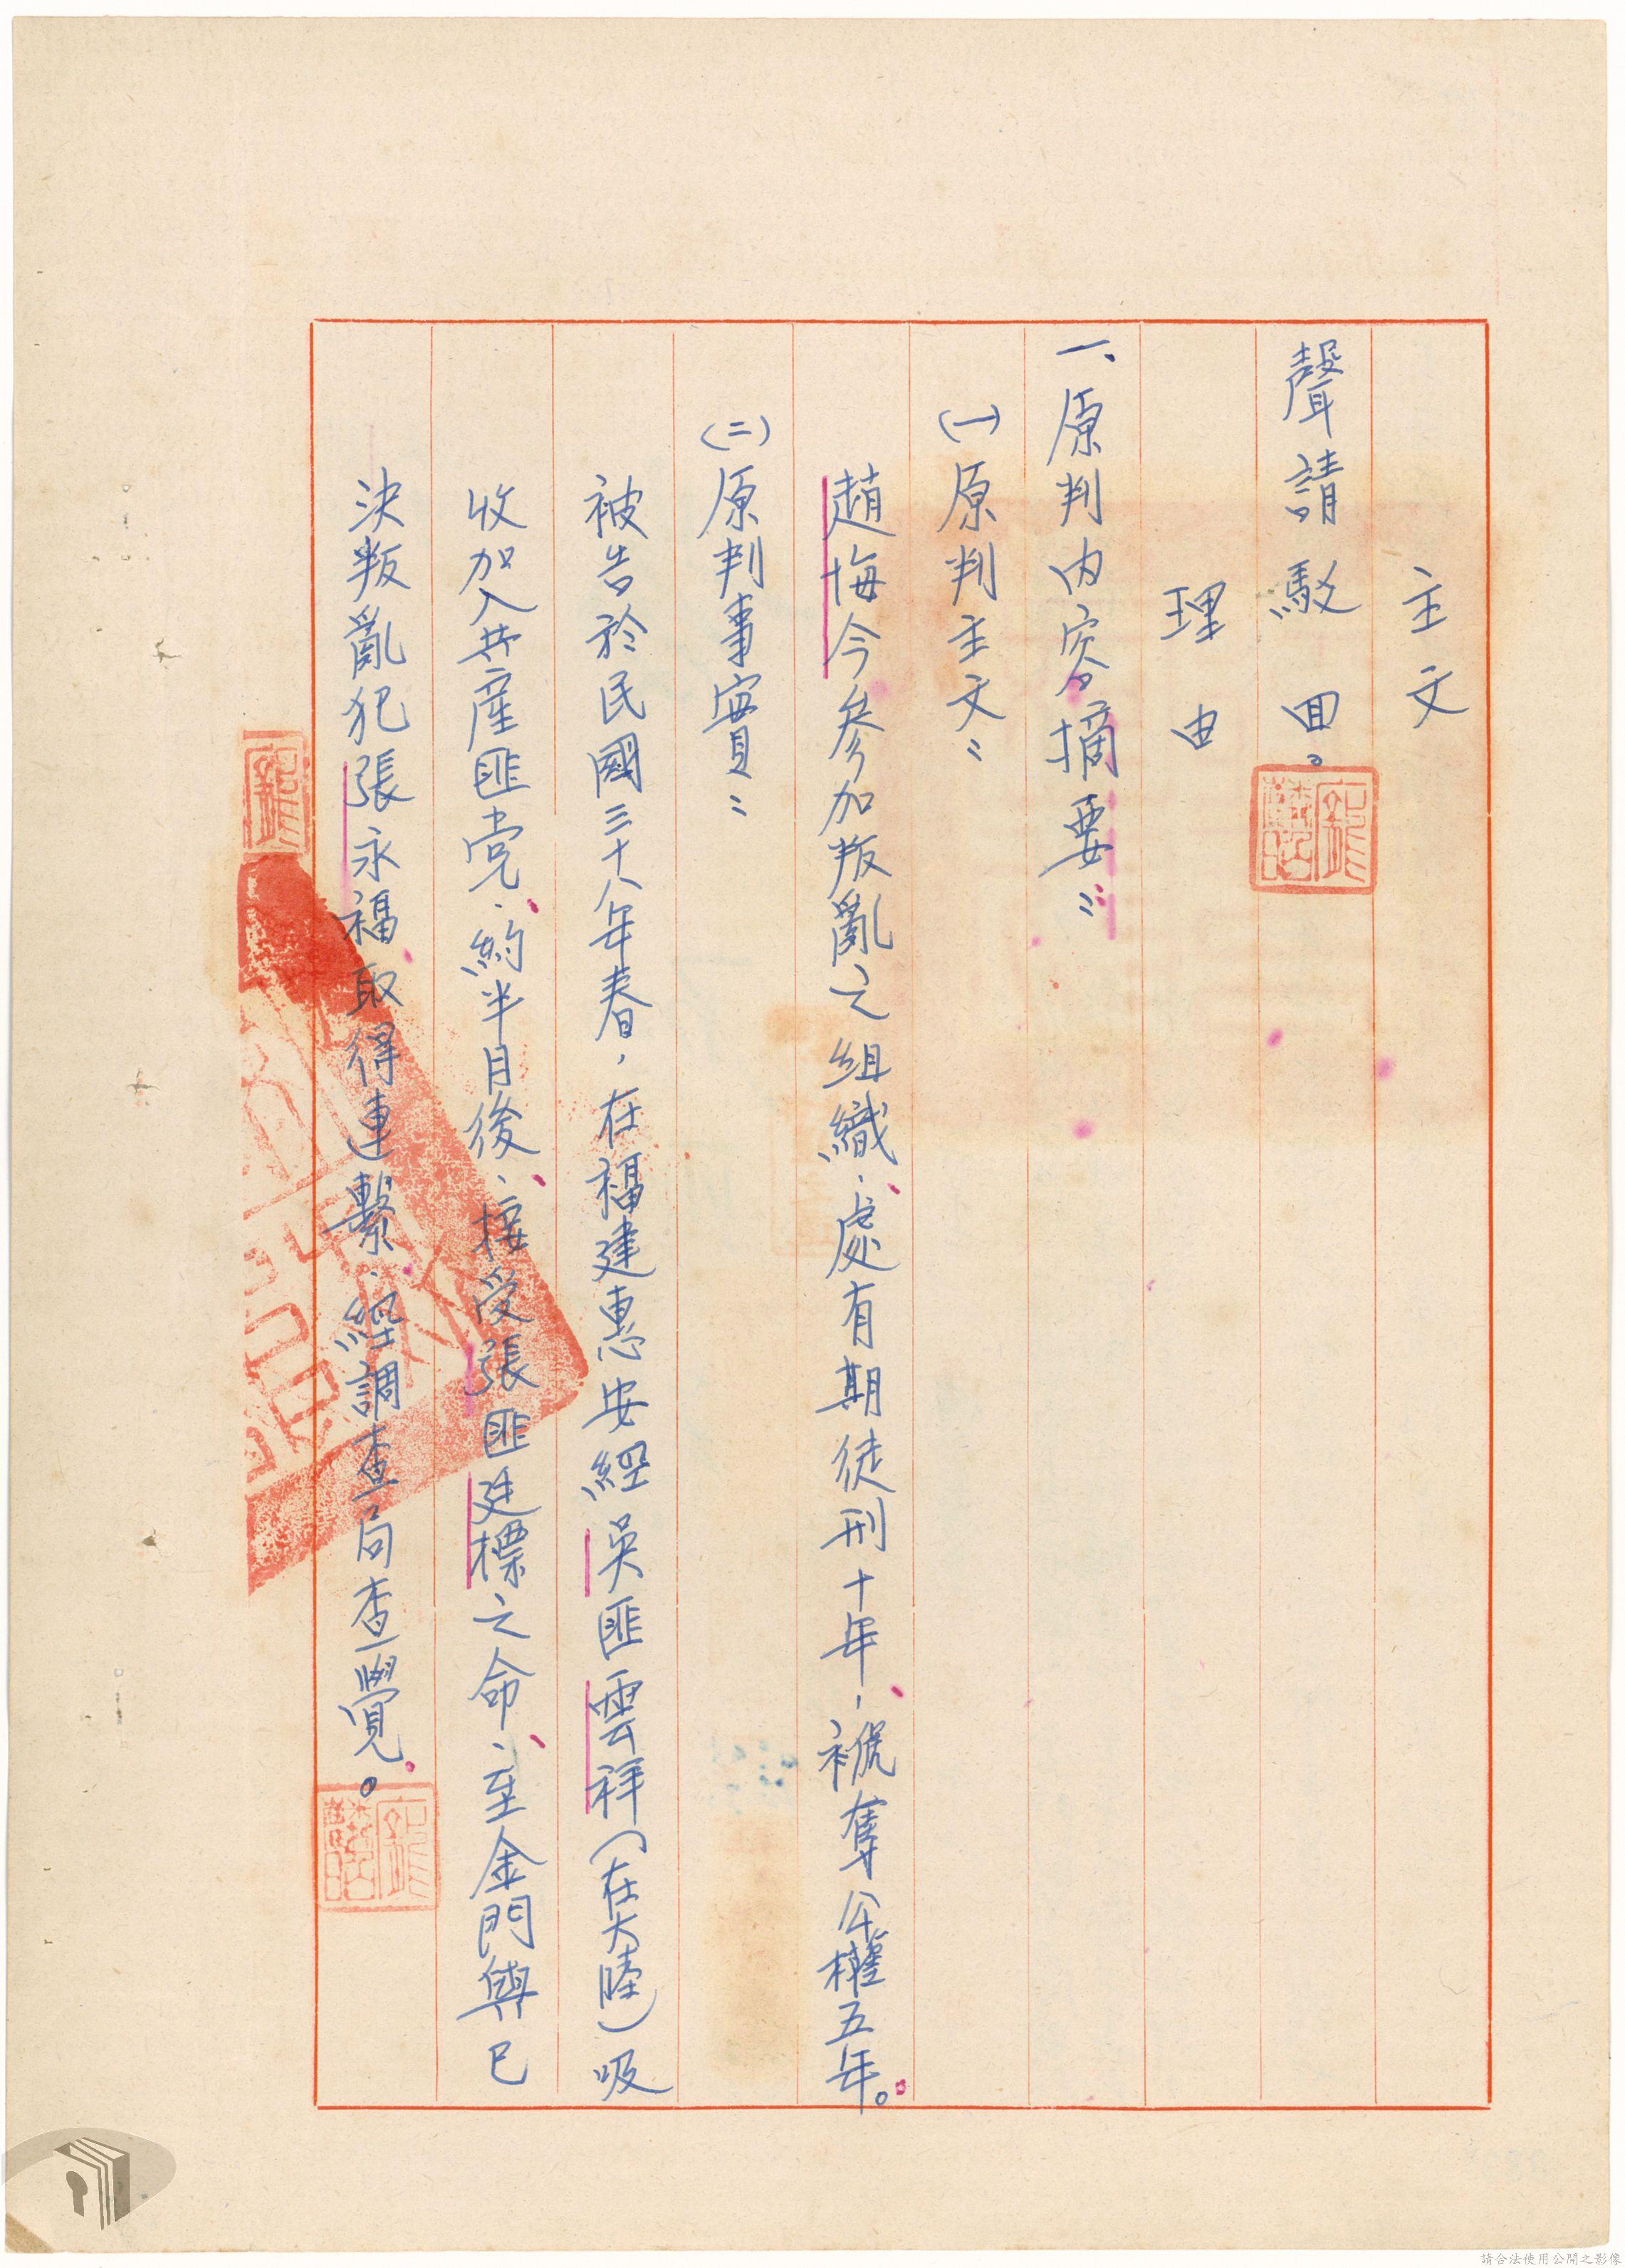 主文
聲請駁回。
理由
一、原判內容摘要：
(一)原判主文：
趙悔今參加叛亂之組織，處有期徒刑十年，褫奪公權五年。
(二)原判事實：
被告於民國三十八年春，在福建惠安經吳匪雲祥(在大陸)吸
收加入共產匪党，約半月後，接受張匪廷標之命，至金門與已
決叛亂犯張永福取得連繫，經調查局查覺。
請合法使用公開之影像